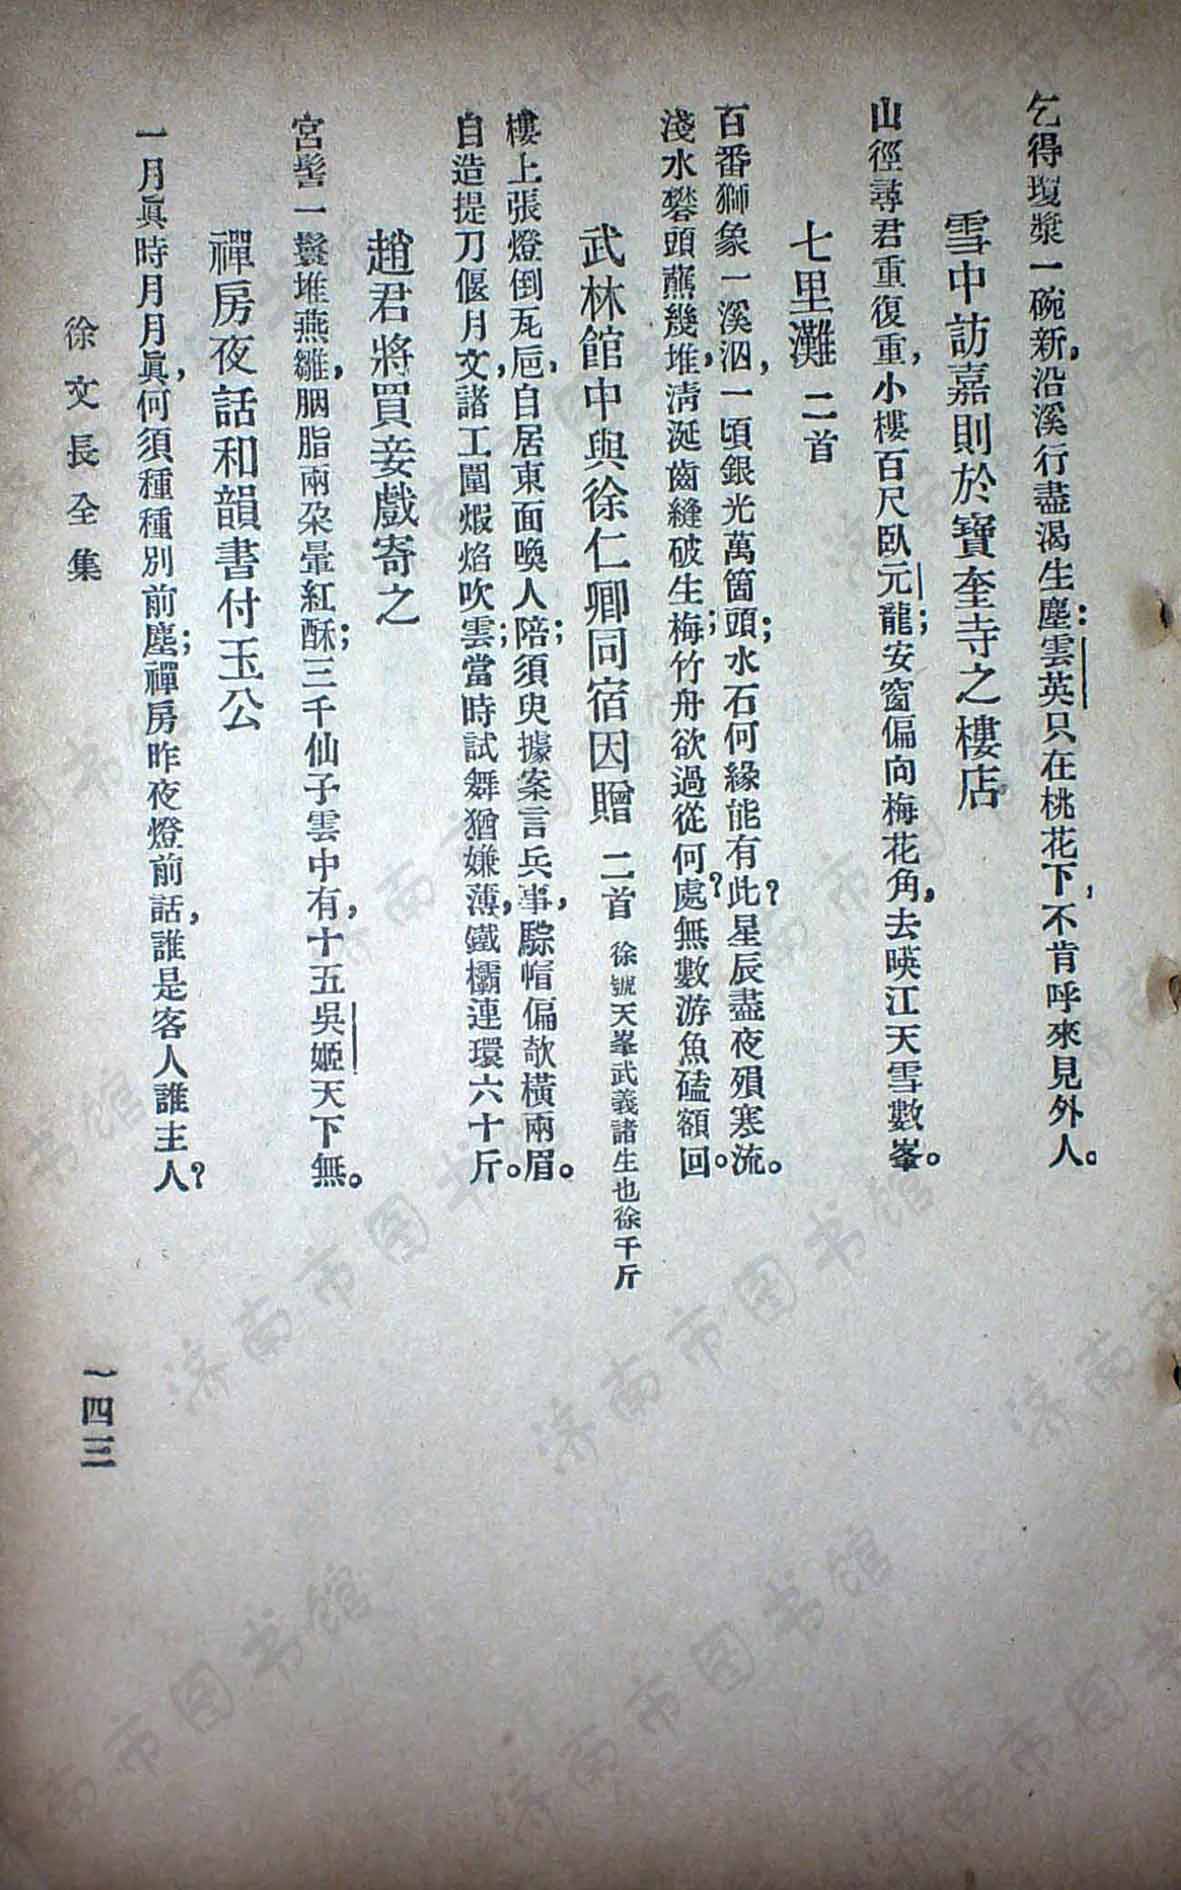 乞得瓊漿一碗新，沿溪行盡渴生塵；雲英只在桃花下，不肯呼來見外人。
雪中訪嘉則於寶奎寺之樓店
山徑尋君重復重，小樓百尺臥元龍；安窗偏向梅花角，去暎江天雪數峯。
七里灘 二首
百番獅象一溪泅，一頃銀光萬箇頭；水石何緣能有此？星辰盡夜殞寒流。
淺水礬頭蘸幾堆，清涎齒縫破生梅；竹舟欲過從何處？無數游魚磕額回。
武林館中與徐仁卿同宿因贈 二首 徐號天峯武義諸生也徐千斤
樓上張燈倒瓦卮，自居東面喚人陪；須臾據案言兵事，騌帽偏欹橫兩眉。
自造提刀偃月文，諸工圍煅焰吹雲；當時試舞猶嫌薄，鐵欛連環六十斤。
趙君將買妾戲寄之
宮髻一鬟堆燕雛，胭脂兩朶暈紅酥；三千仙子雲中有，十五吳姬天下無。
禪房夜話和韻書付玉公
一月眞時月月眞，何須種種別前塵；禪房昨夜燈前話，誰是客人誰主人？
徐文長全集
一四三
济南市图书馆